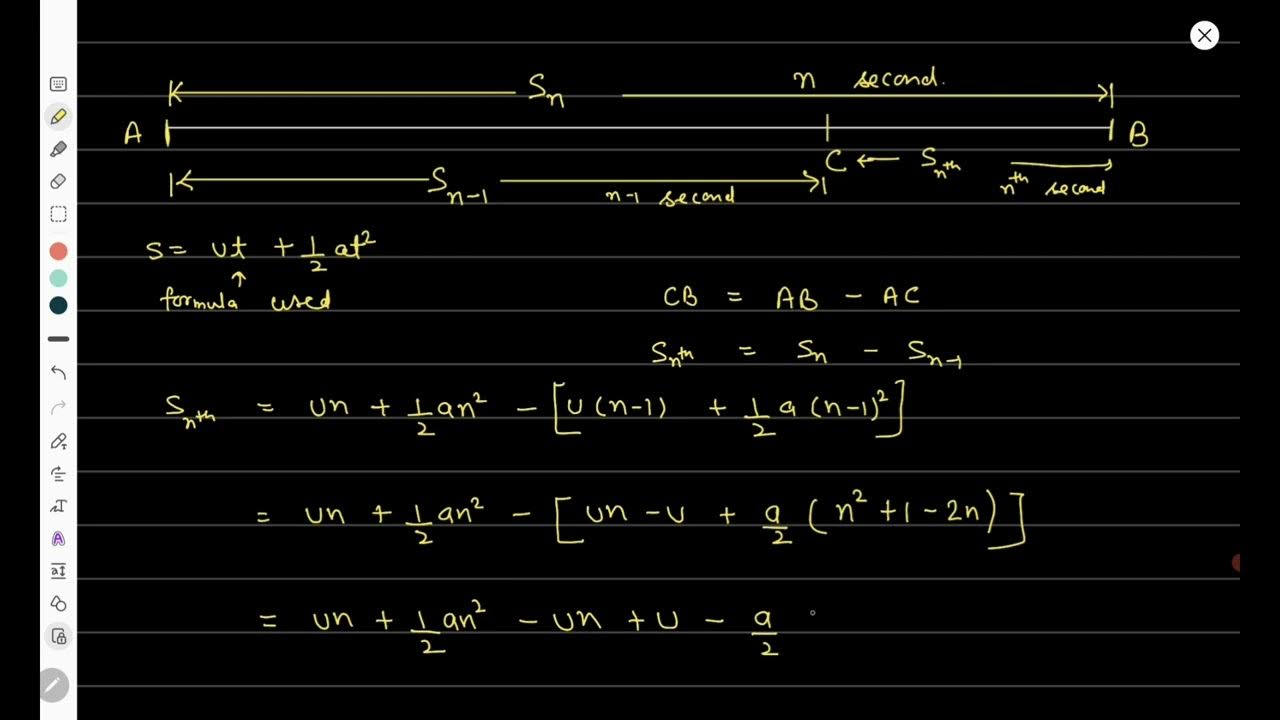 Sn n second.
A B
C ← Snth nth second
Sn-1 n-1 second
s = ut + 1/2 at²
↑
formula used
CB = AB - AC
Snth = Sn - Sn-1
Snth = un + 1/2 an² - [u(n-1) + 1/2 a (n-1)²]
= un + 1/2 an² - [un - u + a/2 (n² + 1 - 2n)]
= un + 1/2 an² - un + u - a/2